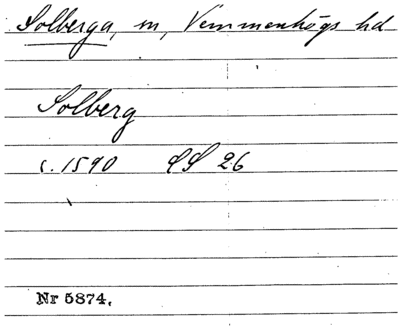 Solberga, m, Vemmenhögs hd
Solberg
c. 1590 LS 26
Nr 5874.